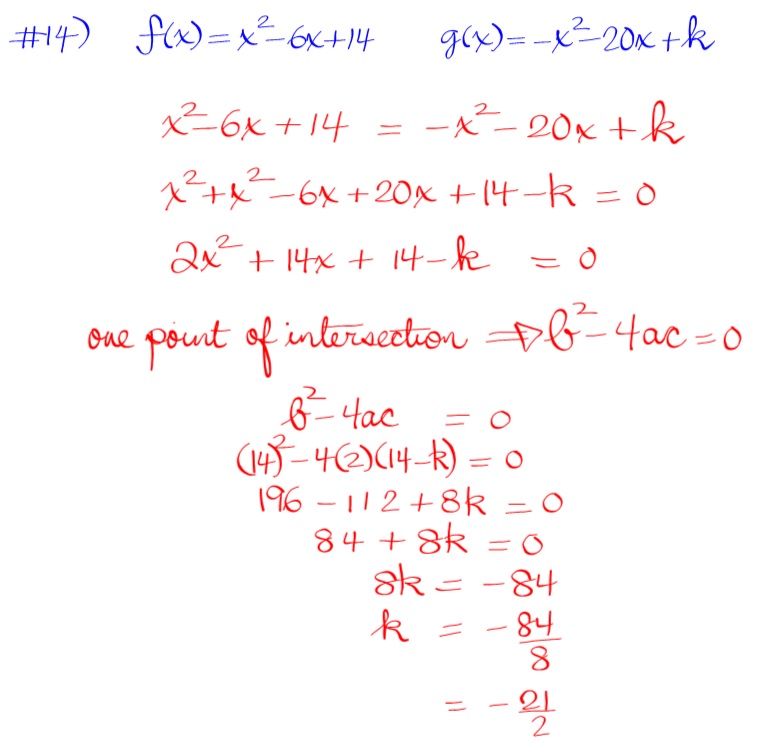 #14) f(x)=x²-6x+14 g(x)=-x²-20x+k
x²-6x+14 = -x²-20x+k
x²+x²-6x+20x+14-k=0
2x²+14x+14-k=0
one point of intersection ⇒ b²-4ac=0
b²-4ac=0
(14)²-4(2)(14-k)=0
196-112+8k=0
84+8k=0
8k=-84
k=-84/8
=-21/2